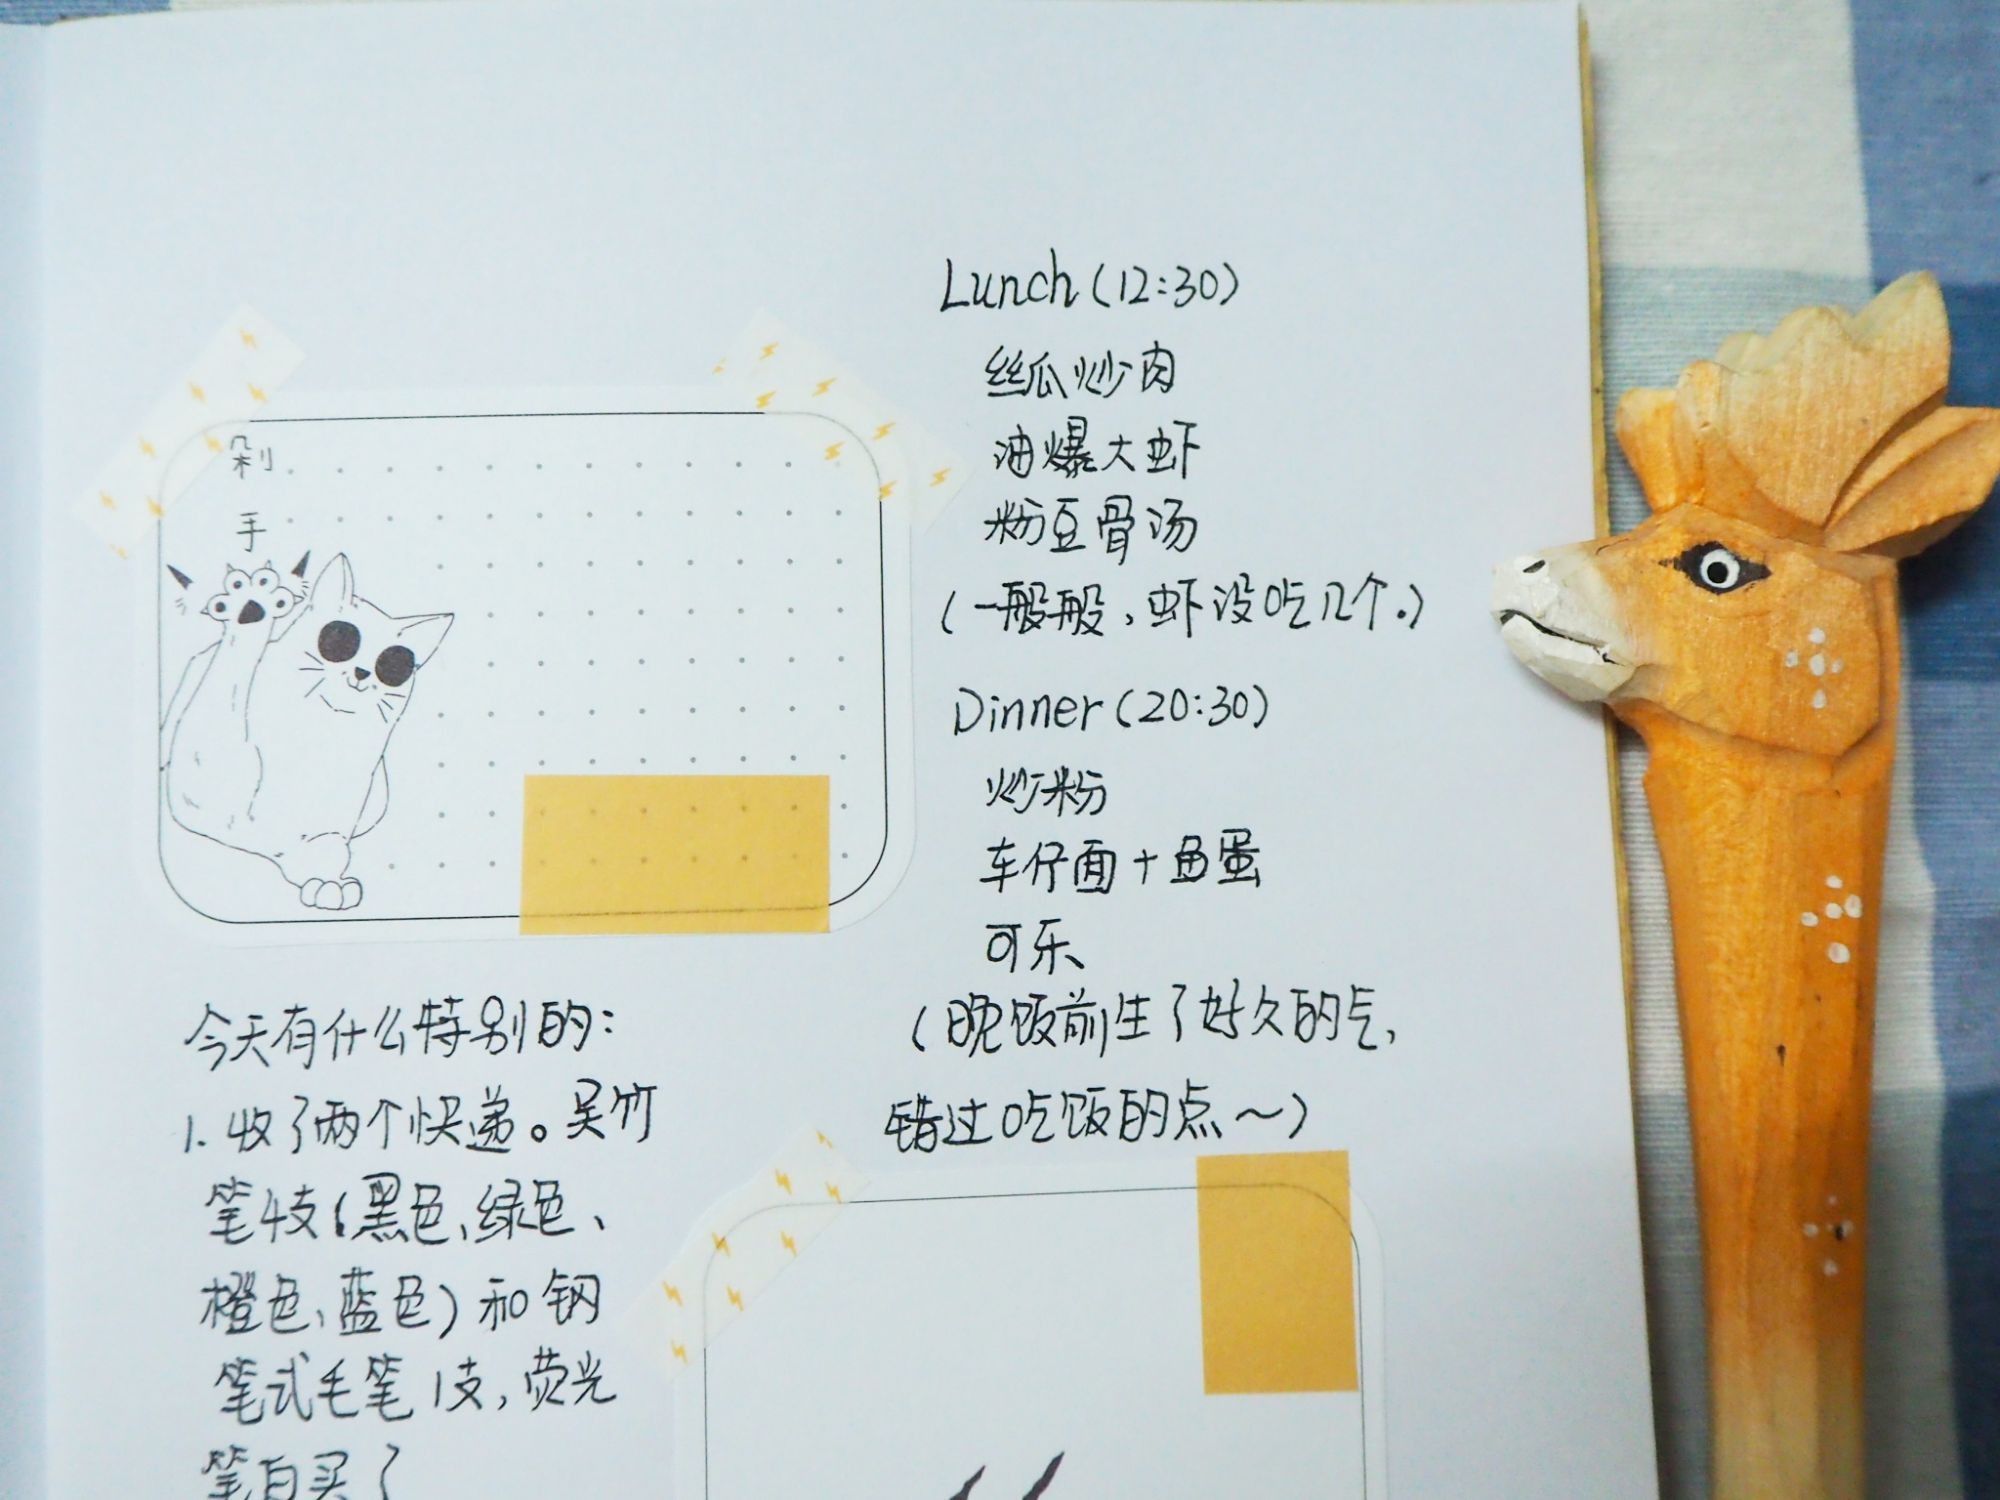 剁
手
今天有什么特别的：
1. 收了两个快递。吴竹
笔4支（黑色、绿色、
橙色、蓝色）和钢
笔式毛笔1支，荧光
笔白买了
Lunch（12:30）
丝瓜炒肉
油爆大虾
粉豆骨汤
（一般般，虾没吃几个.）
Dinner（20:30）
炒粉
车仔面+鱼蛋
可乐
（晚饭前生了好久的气，
错过吃饭的点～）